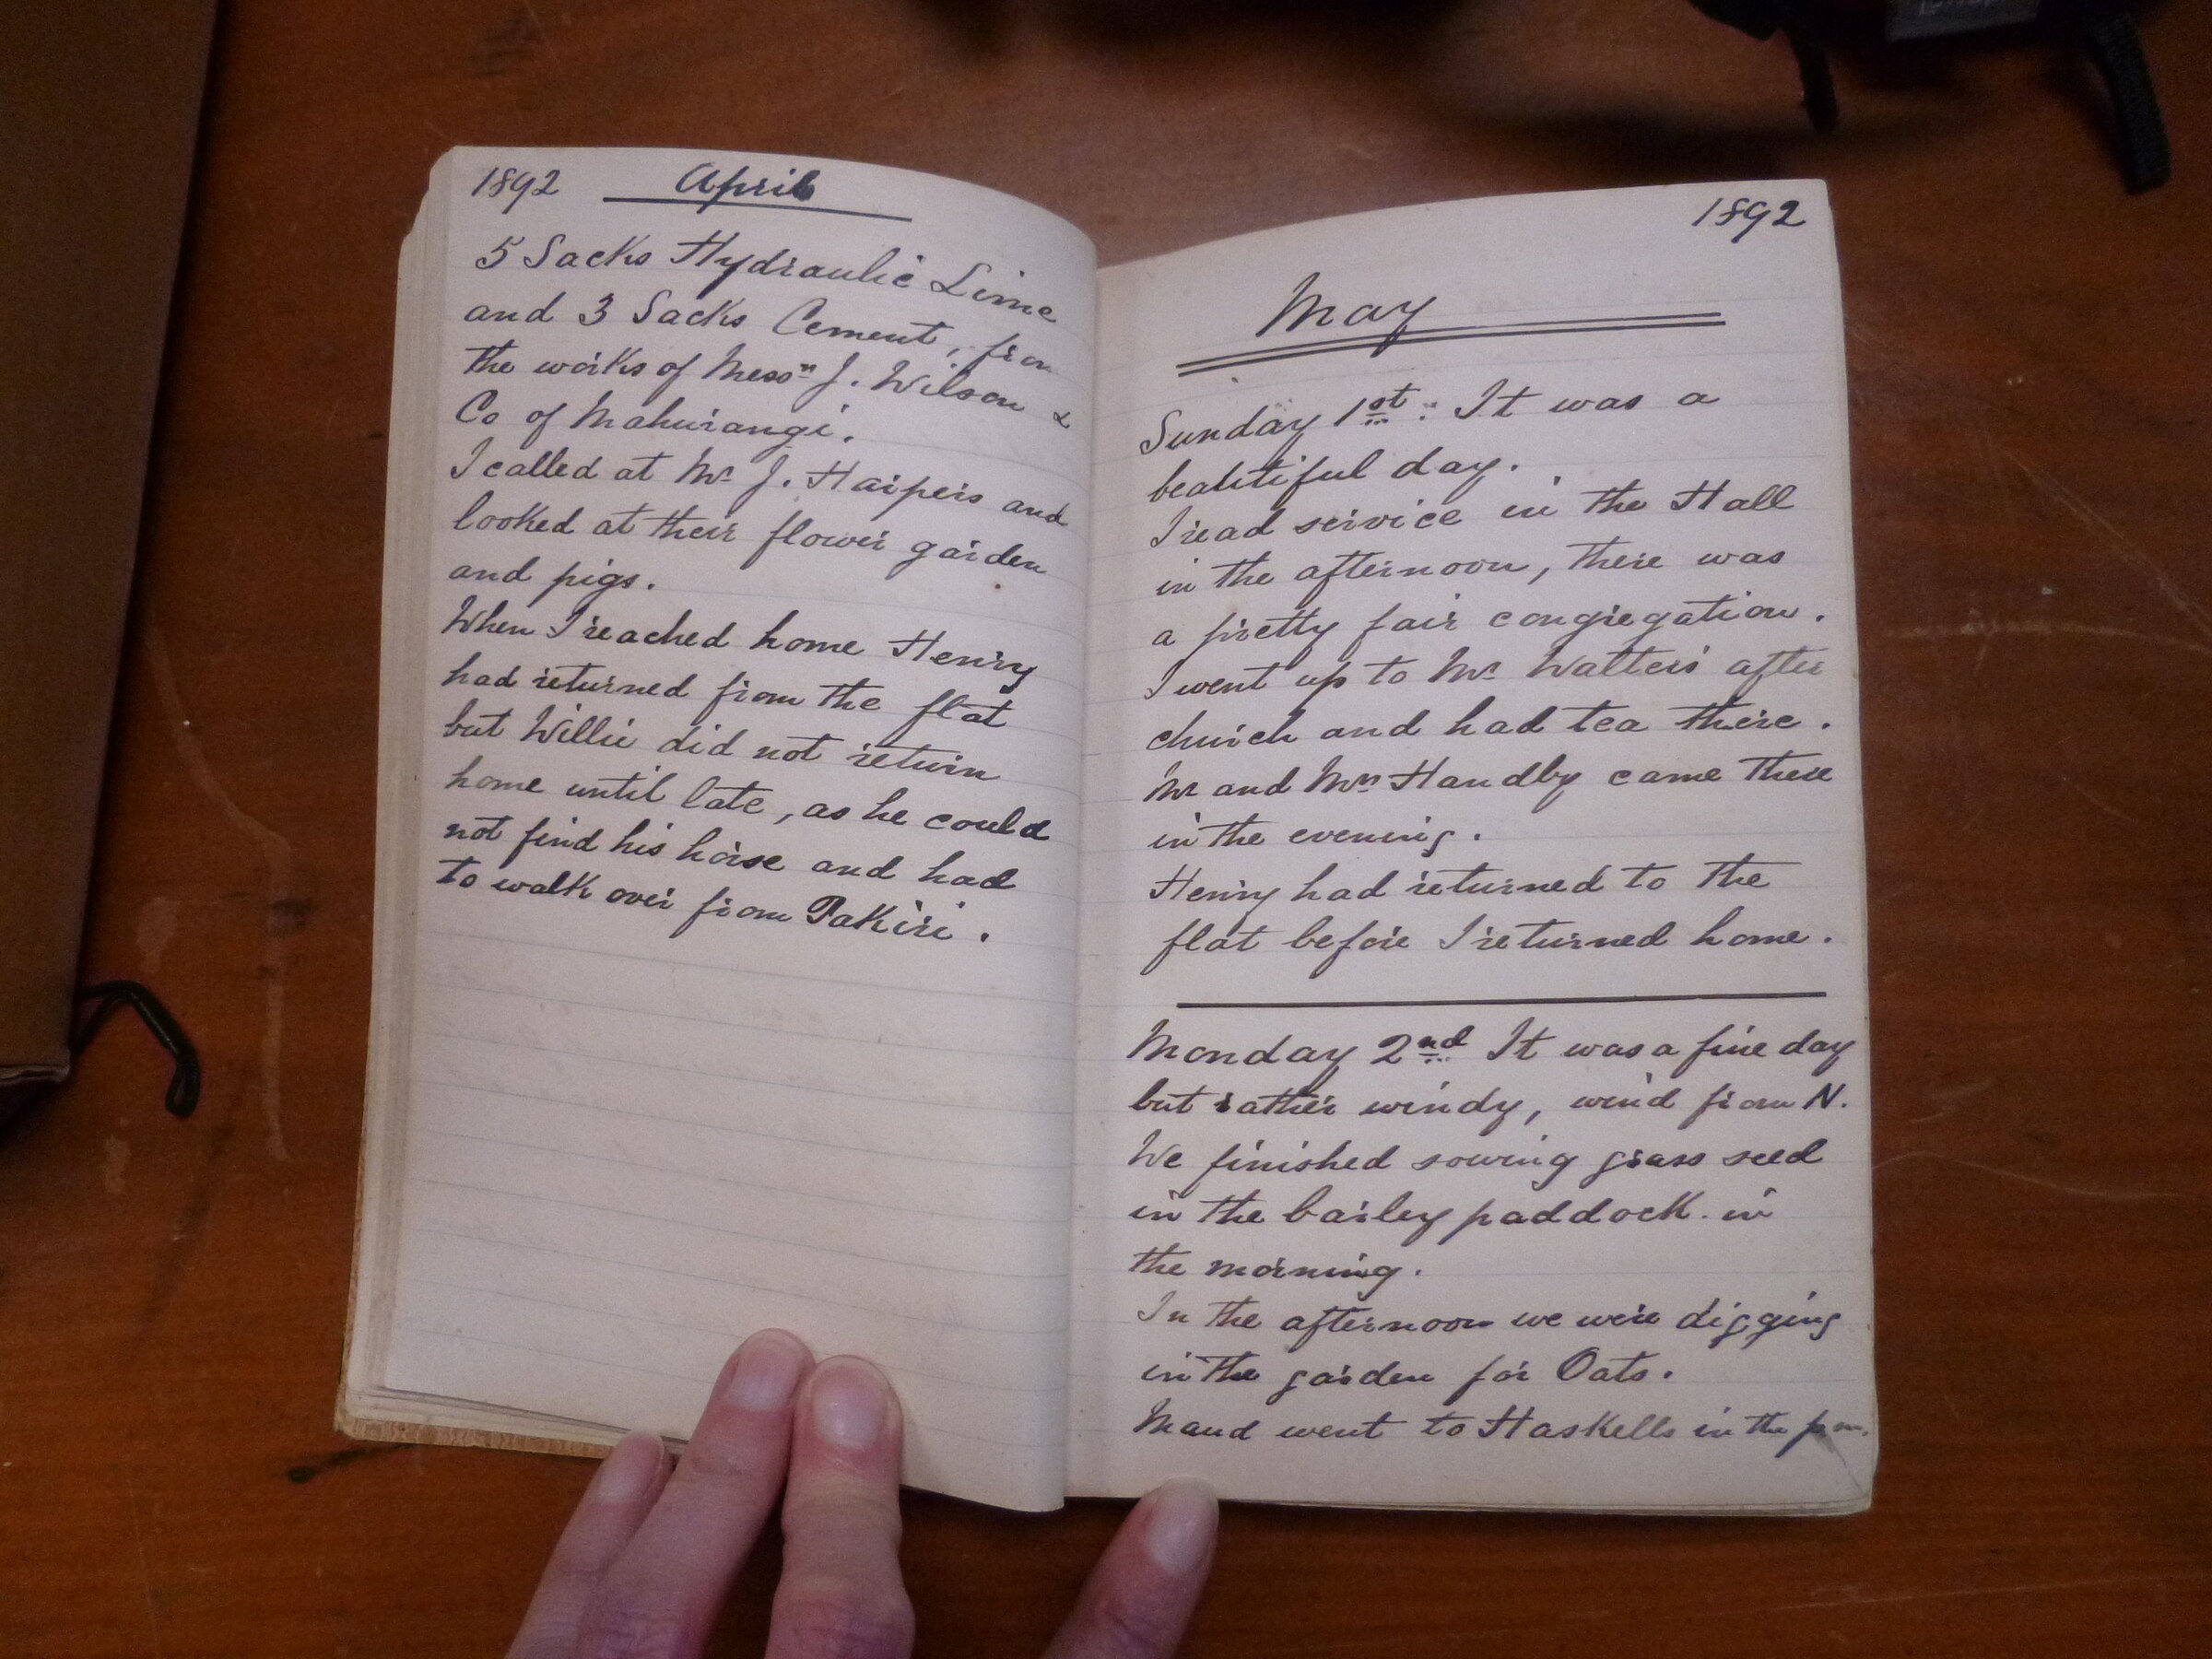 1892 April
5 Sacks Hydraulic Lime
and 3 Sacks Cement, from
the works of Messrs J. Wilson &
Co of Mahurangi.
I called at Mr J. Harpers and
looked at their flower garden
and pigs.
When I reached home Henry
had returned from the flat
but Willie did not return
home until late, as he could
not find his horse and had
to walk over from Pakiri.
1892
May
Sunday 1st. It was a
beautiful day.
I read service in the Hall
in the afternoon, there was
a pretty fair congregation.
I went up to Mr Walters' after
church and had tea there.
Mr and Mrs Handby came there
in the evening.
Henry had returned to the
flat before I returned home.
Monday 2nd It was a fine day
but rather windy, wind from N.
We finished sowing grass seed
in the barley paddock in
the morning.
In the afternoon we were digging
in the garden for Oats.
Maud went to Haskells in the pm.